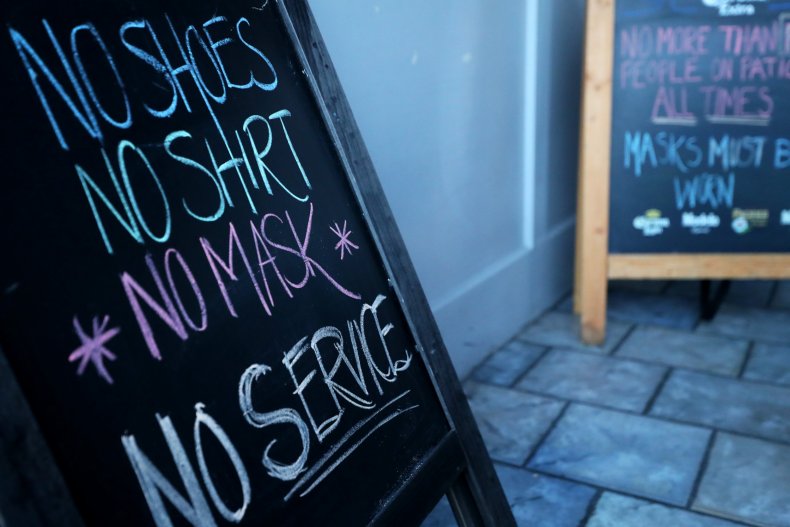 NO SHOES
NO SHIRT
* NO MASK *
NO SERVICE
NO MORE THAN
PEOPLE ON PATIO
ALL TIMES
MASKS MUST B
WORN
Corona
Modelo